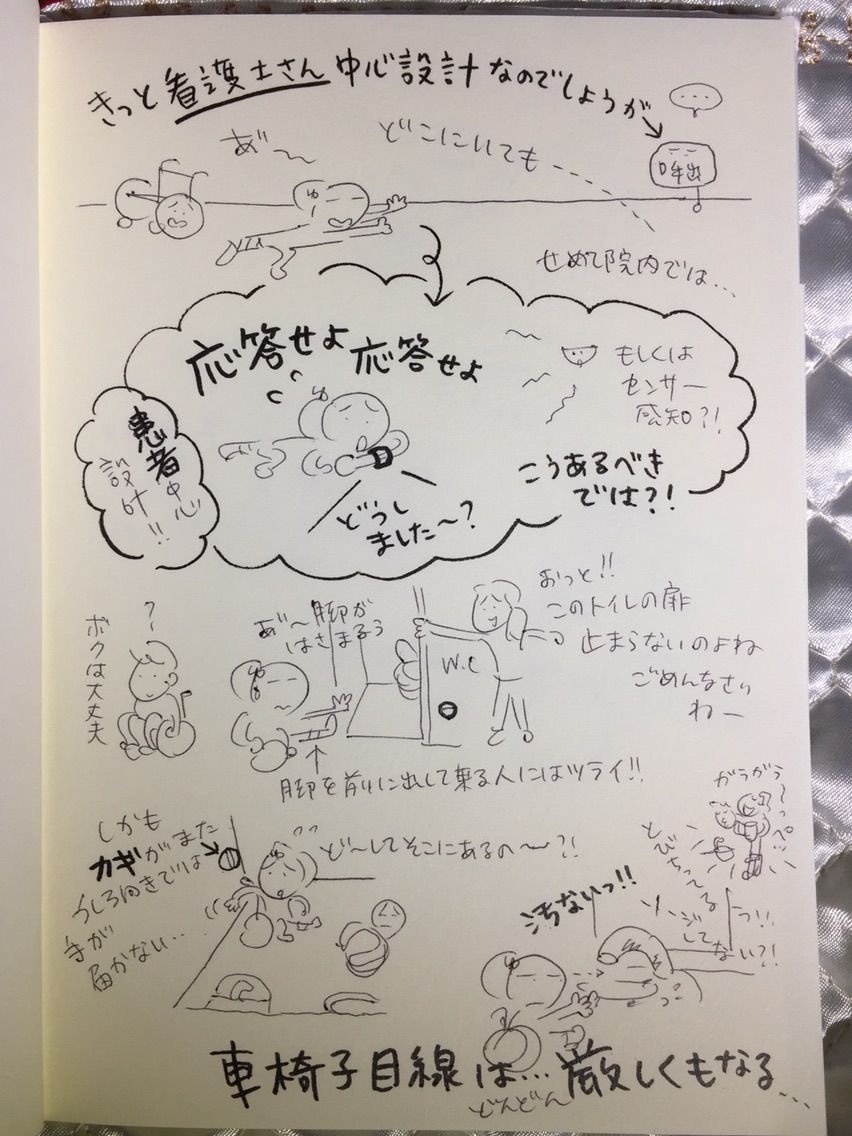 きっと看護士さん中心設計なのでしょうが
あ゛〜
どこにいても…
呼出
せめて院内では…
応答せよ 応答せよ
もしくは
センサー
感知?!
患者中心
設計!!
こうあるべき
では?!
どうし
ました〜?
?
ボクは大丈夫
あ゛〜脚が
はさまるぅ
W.C
おっと!!
このトイレの扉
止まらないのよね
ごめんなさい
ねー
脚を前に出して乗る人にはツライ!!
しかも
カギがまた
うしろ向きでは
手が
届かない…
ど〜してそこにあるの〜?!
がらがら〜っペッ
とびちってる
汚ないっ!!
ソージ
してない?!
車椅子目線は…厳しくもなる…
どんどん